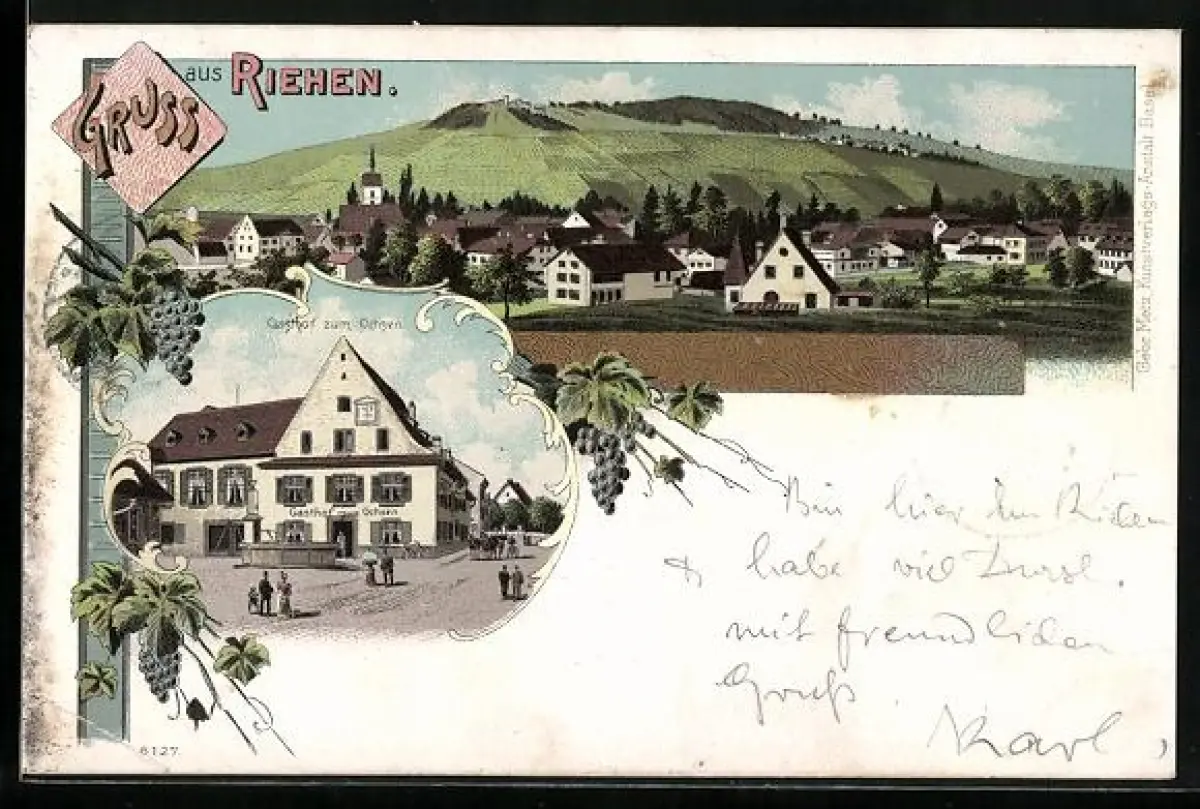 GRUSS aus RIEHEN.
Gasthof zum Ochsen.
Gasthof zum Ochsen
Bin hier in
& habe viel Durst.
mit freundlichen
Gruß.
Karl,
6127.
Gebr. Metz, Kunstverlags-Anstalt Basel